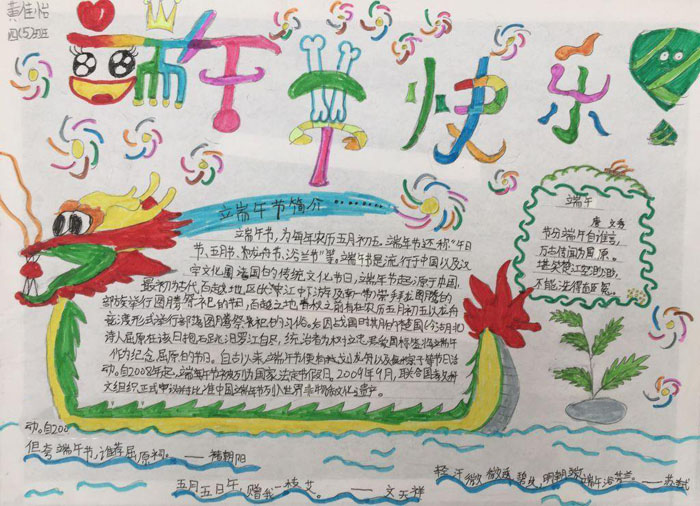 黄佳怡
四(5)班
端午节快乐
端午节简介
端午节,为每年农历五月初五。端午节还称“午日
节、五月节、
节”等,端午节是流行于中国以及汉
字文化圈诸国的传统文化节日,端午节起源于中国,
最初为古代百越地区(长江中下游及南一带)崇拜龙图腾的
部族举行图腾祭祀的节日,百越之地春秋之前有在农历五月初五以龙舟
竞渡形式举行部落图腾祭祀的习俗。
因战国时期的楚国(今湖北)
诗人屈原在该日抱石跳汨罗江自尽,统治者为树立忠君爱国标签将端午
作为纪念屈原的节日。自古以来端午节便有
划龙舟及食粽等节日活
动。自2008年起,端午节被列为国家法定节假日。2009年9月,联合国教科
文组织正式审议并批准中国端午节列入世界非物质文化遗产。
端午
唐 文秀
节分端午自谁言,
万古传闻为屈原。
堪笑楚江空渺渺,
不能洗得直臣冤。
动。自200
但夸端午节,谁荐屈原祠。——褚朝阳
五月五日午,赠我一枝艾。——文天祥
轻汗微微透碧纨,明朝端午浴芳兰。——苏轼